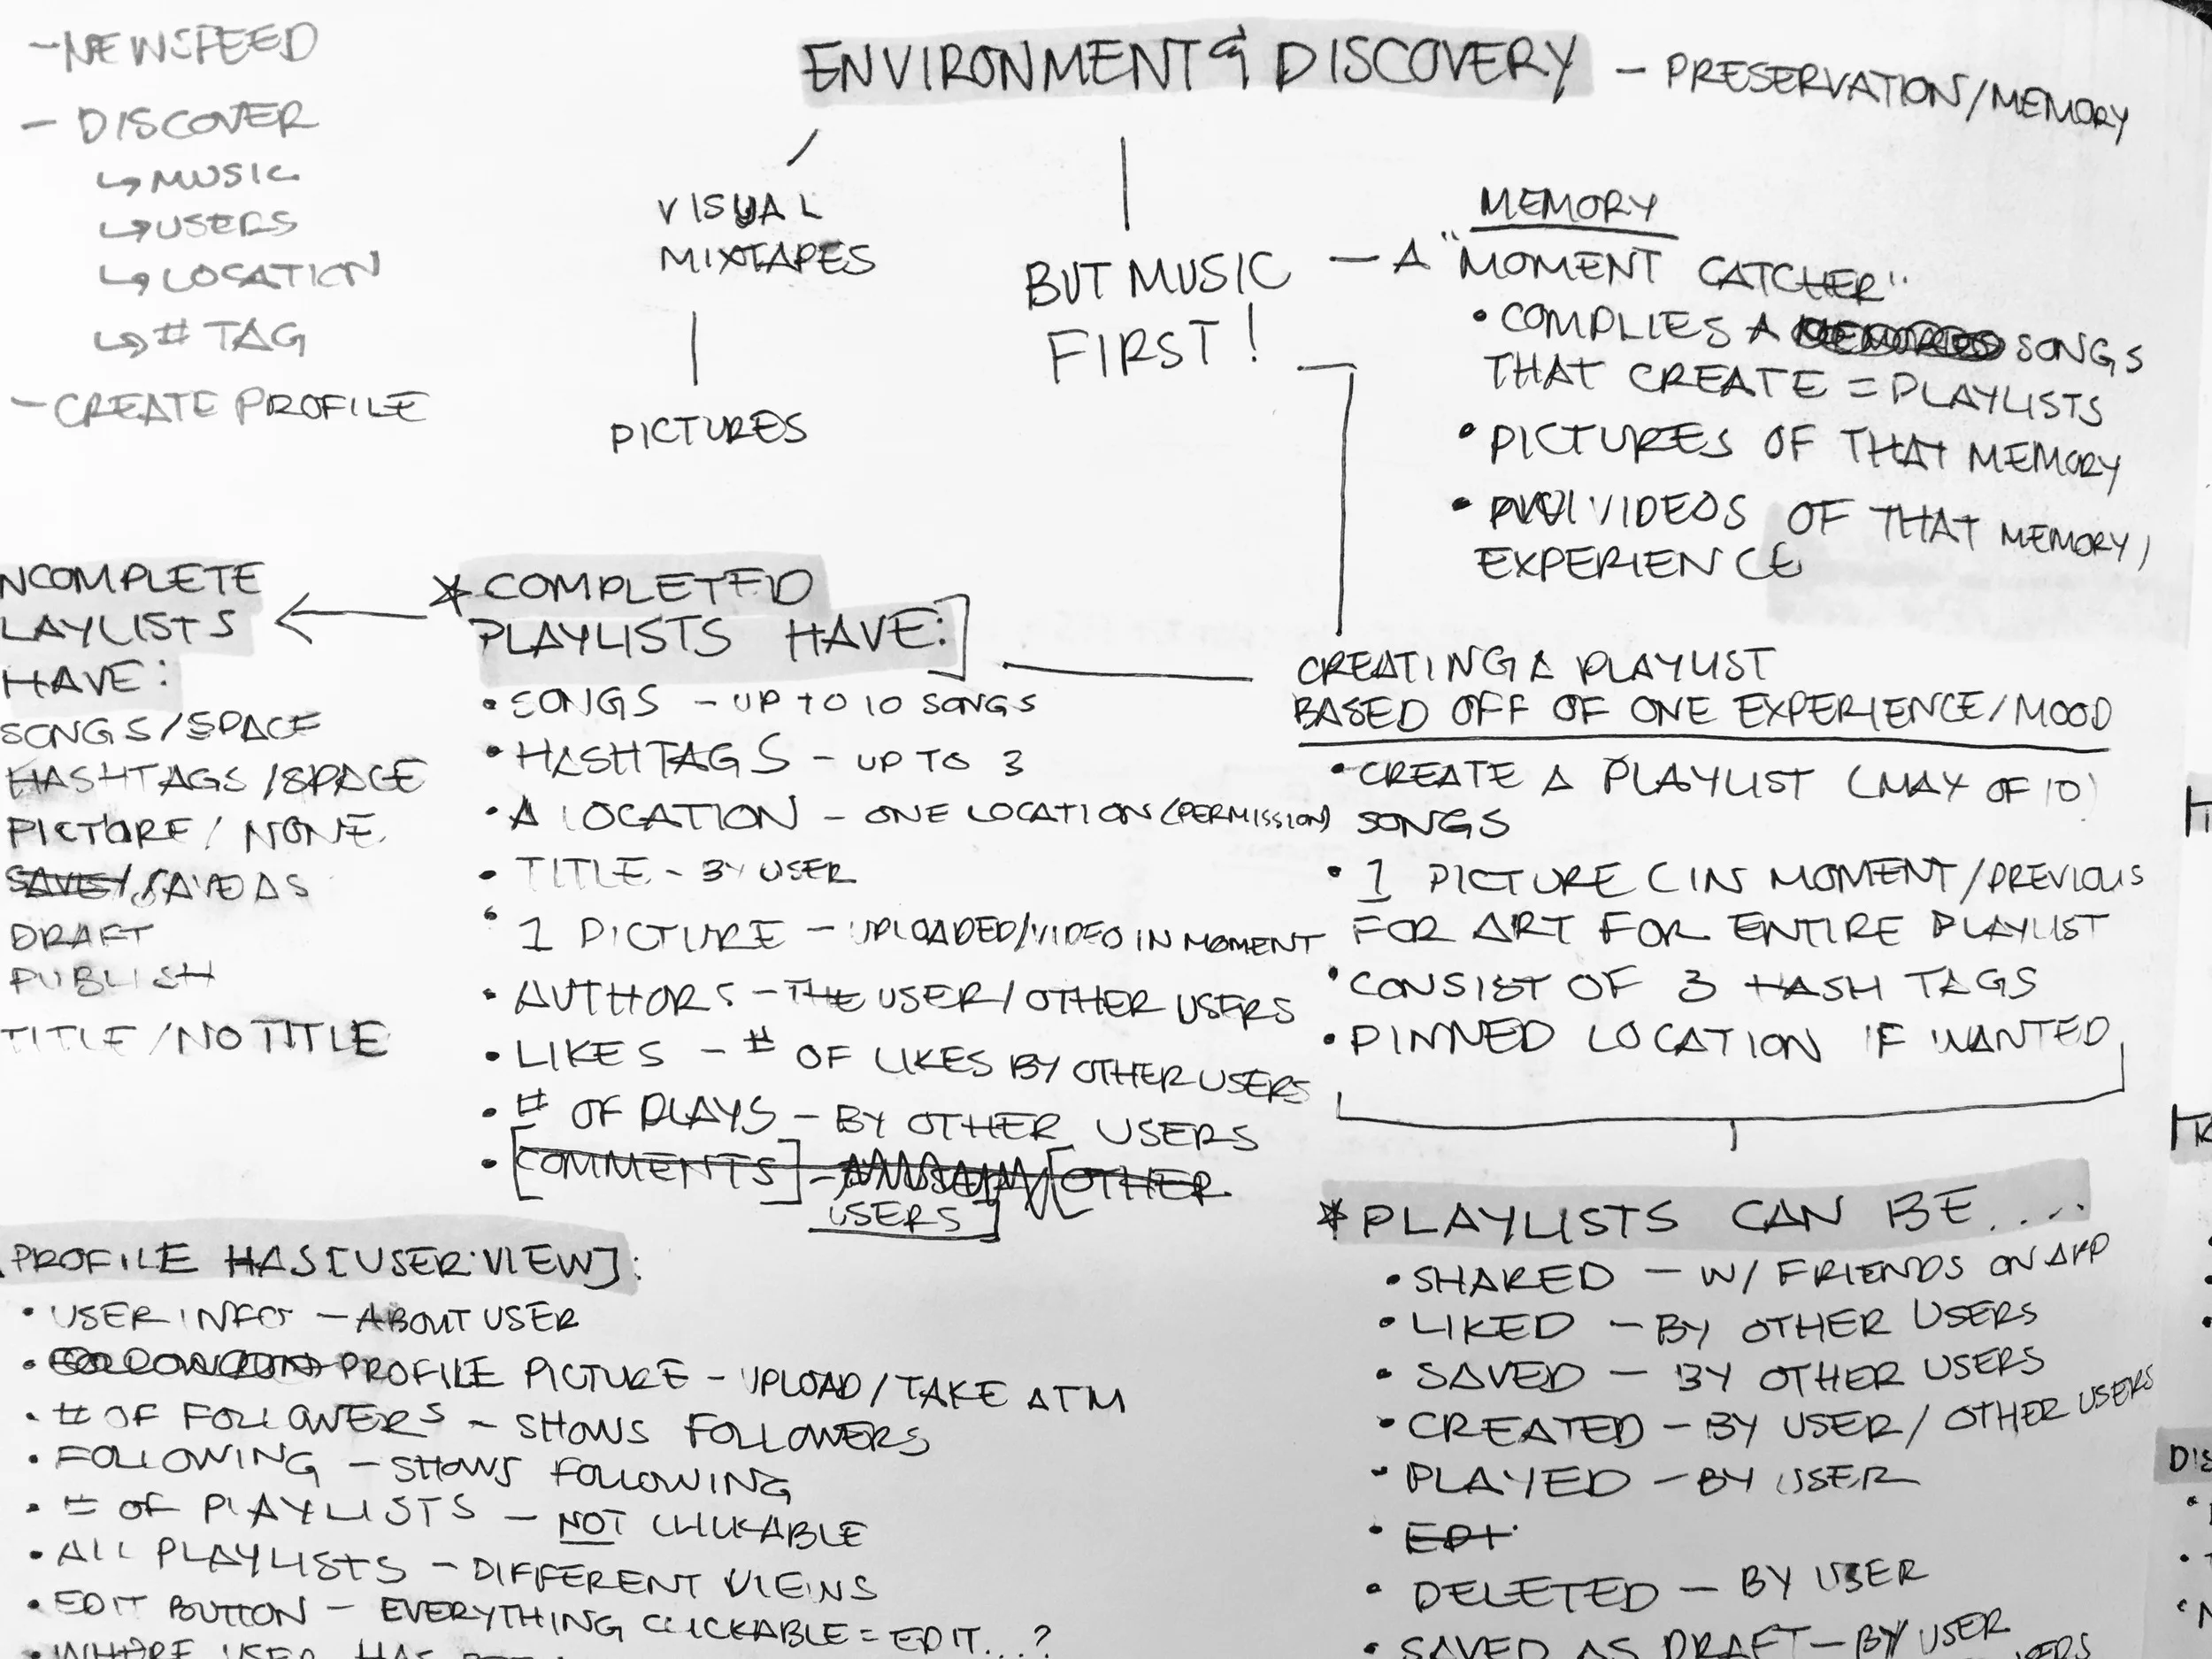 - NEWSFEED
- DISCOVER
↳ MUSIC
↳ USERS
↳ LOCATION
↳ # TAG
- CREATE PROFILE
ENVIRONMENT & DISCOVERY - PRESERVATION/MEMORY
VISUAL
MIXTAPES
PICTURES
BUT MUSIC
FIRST!
MEMORY
- A "MOMENT CATCHER"
• COMPLIES A SONGS
THAT CREATE = PLAYLISTS
• PICTURES OF THAT MEMORY
• VIDEOS OF THAT MEMORY/
EXPERIENCE
NCOMPLETE
LAYLISTS
HAVE:
SONGS/SPACE
HASHTAGS/SPACE
PICTURE/NONE
SAVE/SAVE AS
DRAFT
PUBLISH
TITLE/NO TITLE
* COMPLETED
PLAYLISTS HAVE:
• SONGS - UP TO 10 SONGS
• HASHTAGS - UP TO 3
• A LOCATION - ONE LOCATION (PERMISSION)
• TITLE - BY USER
• 1 PICTURE - UPLOADED/VIDEO IN MOMENT
• AUTHORS - THE USER/OTHER USERS
• LIKES - # OF LIKES BY OTHER USERS
• # OF PLAYS - BY OTHER USERS
• [COMMENTS] - [OTHER
USERS]
CREATING A PLAYLIST
BASED OFF OF ONE EXPERIENCE/MOOD
• CREATE A PLAYLIST (MAX OF 10)
SONGS
• 1 PICTURE (IN MOMENT/PREVIOUS
FOR ART FOR ENTIRE PLAYLIST
• CONSIST OF 3 HASH TAGS
• PINNED LOCATION IF WANTED
* PLAYLISTS CAN BE....
• SHARED - W/ FRIENDS ON APP
• LIKED - BY OTHER USERS
• SAVED - BY OTHER USERS
• CREATED - BY USER/OTHER USERS
• PLAYED - BY USER
• EDIT
• DELETED - BY USER
• SAVED AS DRAFT - BY USER
PROFILE HAS [USER:VIEW]:
• USER INFO - ABOUT USER
• PROFILE PICTURE - UPLOAD/TAKE ATM
• # OF FOLLOWERS - SHOWS FOLLOWERS
• FOLLOWING - SHOWS FOLLOWING
• # OF PLAYLISTS - NOT CLICKABLE
• ALL PLAYLISTS - DIFFERENT VIEWS
• EDIT BUTTON - EVERYTHING CLICKABLE = EDIT...?
• WHERE USER HAS
DIS